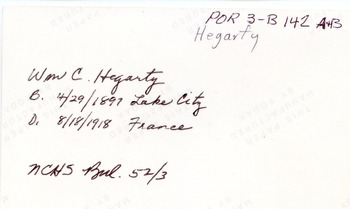 POR 3-B 142 A+B
Hegarty
Wm C. Hegarty
B. 4/29/1897 Lake City
D. 8/18/1918 France
NCHS Bul. 52/3